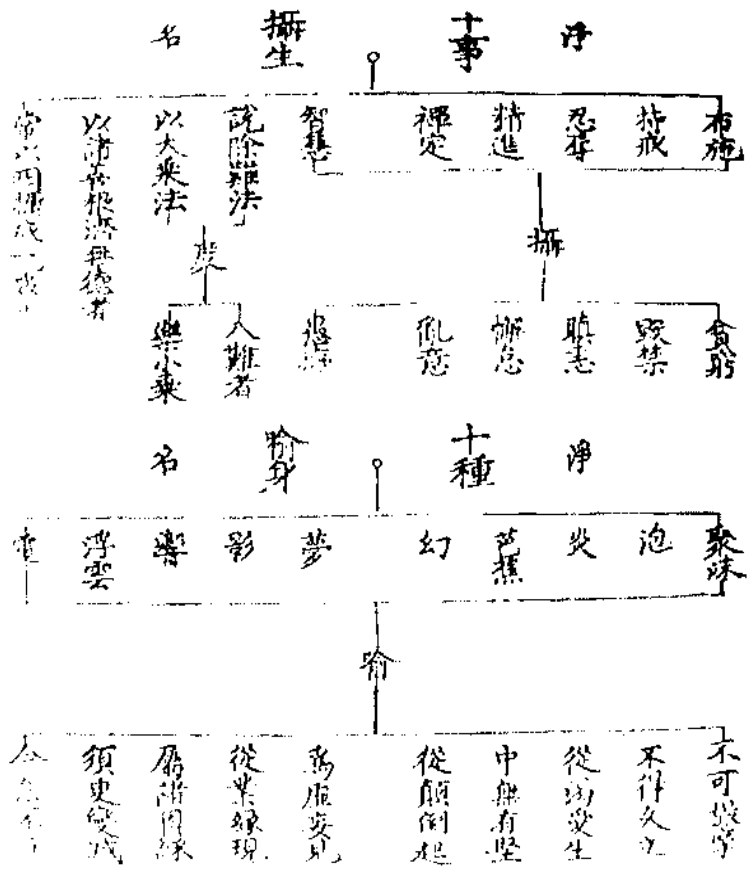 淨
十事
攝生
名
布施
持戒
忍辱
精進
禪定
智慧
說除難法
以大乘法
以諸善根濟無德者
常以四攝成
攝
度
貧窮
毀禁
瞋恚
懈怠
亂意
愚
八難者
樂小乘
淨
十種
喻身
名
聚沫
泡
炎
芭蕉
幻
夢
影
響
浮雲
電
喻
不可撮摩
不得久立
從渴愛生
中無有堅
從顛倒起
為虛妄見
從業緣現
屬諸因緣
須臾變滅
念念